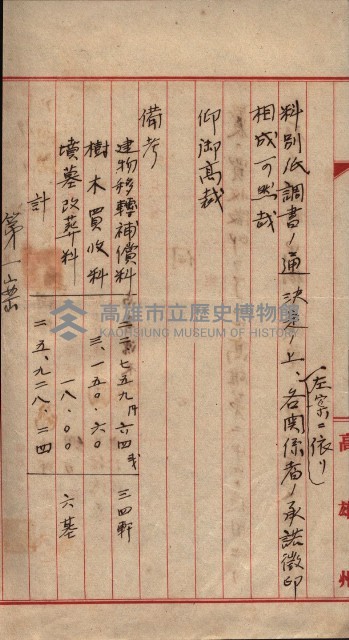 高雄州
左案ニ依リ
料別紙調書ノ通決定ノ上、各関係者ノ承諾徴印
相成可然哉
仰御高裁
備考
建物移轉補償料 二二、七五九円六四戋 三四軒
樹木買收料 三、一五〇.六〇
墳墓改葬料 一八.〇〇 六基
計 二五、九二八.二四
第一案
高雄市立歷史博物館
KAOHSIUNG MUSEUM OF HISTORY